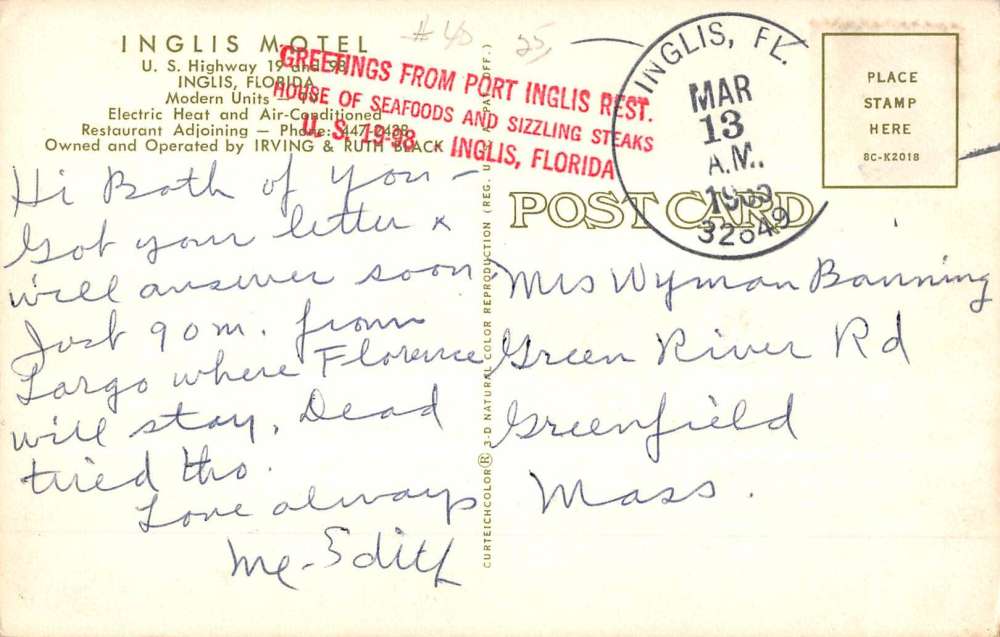 INGLIS MOTEL
U. S. Highway 19 and 98
INGLIS, FLORIDA
Modern Units —
Electric Heat and Air-Conditioned
Restaurant Adjoining — Phone: 447-2438
Owned and Operated by IRVING & RUTH BLACK
GREETINGS FROM PORT INGLIS REST.
HOUSE OF SEAFOODS AND SIZZLING STEAKS
U. S. 19-98 - INGLIS, FLORIDA
# 40
25
INGLIS, FL.
MAR
13
A.M.
32649
PLACE
STAMP
HERE
8C-K2018
POST CARD
Hi Both of You —
Got your letter &
will answer soon,
Just 90 m. from
Largo where Florence
will stay. Dead
tired tho.
Love always
Me - Edith
CURTEICHCOLOR® 3-D NATURAL COLOR REPRODUCTION (REG. U.S.A. PAT. OFF.)
Mrs Wyman Banning
Green River Rd
Greenfield
Mass.